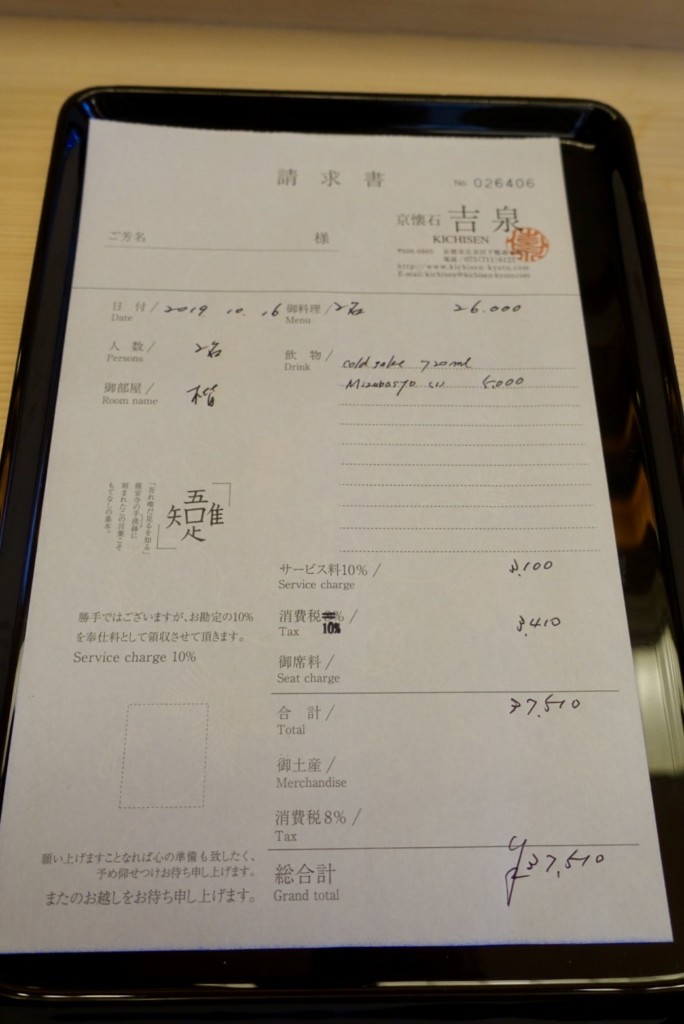 請求書
No. 026406
京懐石 吉泉
KICHISEN
ご芳名 様
http://www.kichisen-kyoto.com
E-mail:kichisen@kichisen-kyoto.com
日付/ 2019 10. 16
Date
御料理/2名 26.000
Menu
人数/ 2名
Persons
飲物/
Drink
cold sake 720ml
5.000
御部屋/
Room name
「吾れ唯だ足るを知る」
龍安寺の手水鉢に
刻まれたこの言葉こそ
もてなしの基本。
吾唯足知
サービス料10%/ 3.100
Service charge
勝手ではございますが、お勘定の10%
を奉仕料として領収させて頂きます。
Service charge 10%
消費税 %/ 3.410
Tax 10%
御席料/
Seat charge
合計/ 37.510
Total
御土産/
Merchandise
消費税8%/
Tax
願い上げますことなれば心の準備も致したく、
予め仰せつけお待ち申し上げます。
またのお越しをお待ち申し上げます。
総合計 ¥37.510
Grand total